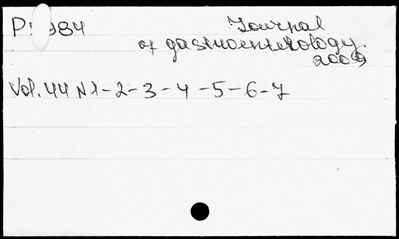 P 984 Journal
of gastroenterology.
2009
Vol. 44 N 1-2-3-4-5-6-7